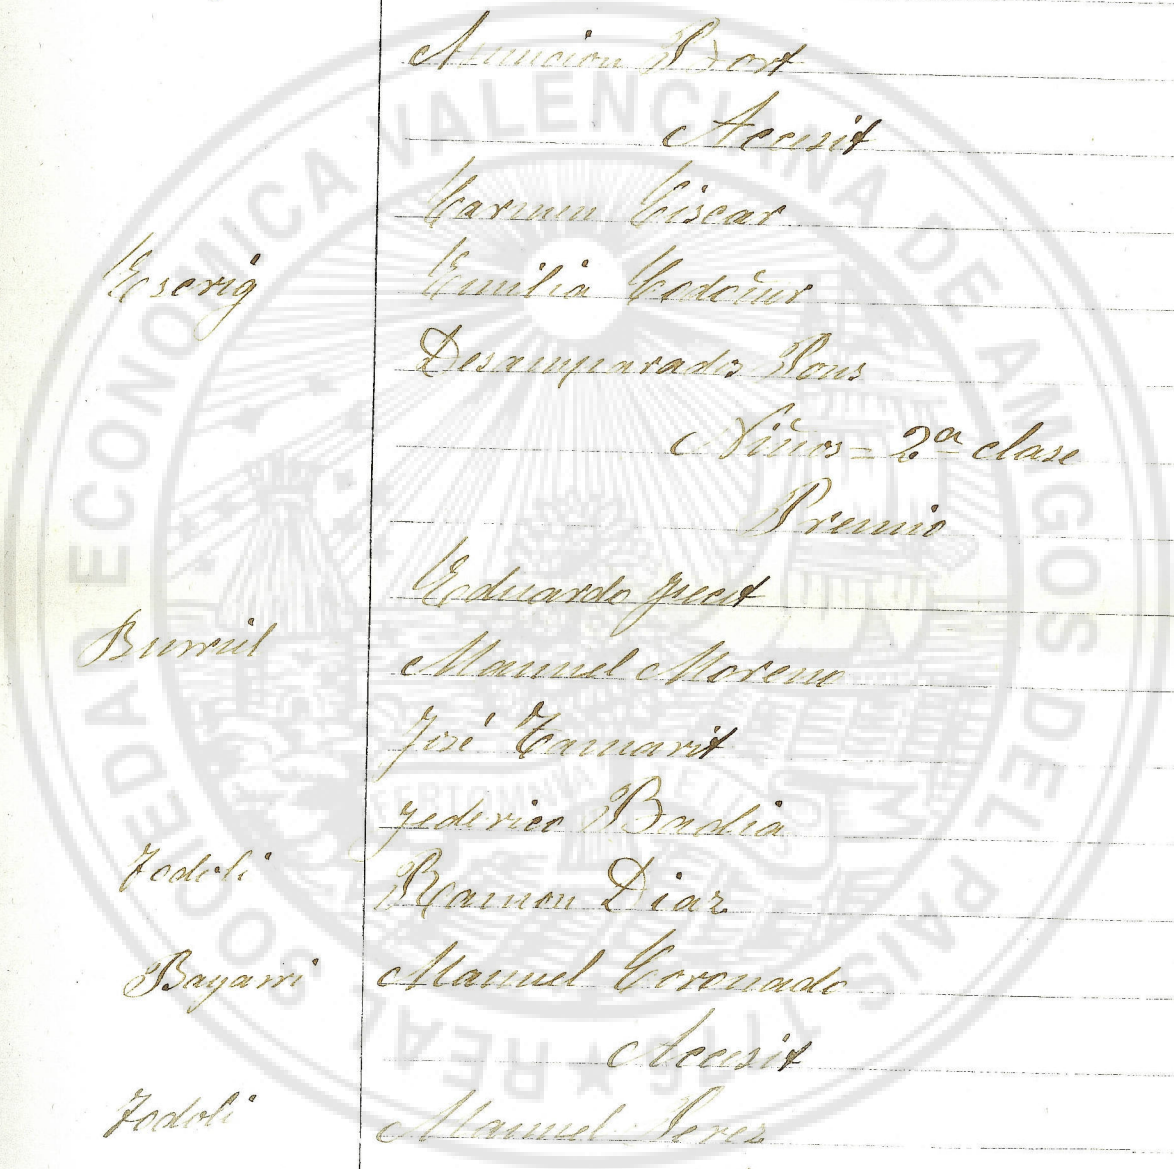 Asuncion Bort
Accesit
Carmen Ciscar
Escrig Emilia Codoñer
Desamparados Pons
Niños = 2ª clase
Premio
Eduardo
Manuel Moreno
José Tamarit
Federico Badia
Todoli Ramon Diaz
Bayarri Manuel Coronado
Accesit
Todoli Manuel Perez
REAL SOCIEDAD ECONOMICA VALENCIANA DE AMIGOS DEL PAIS 1776